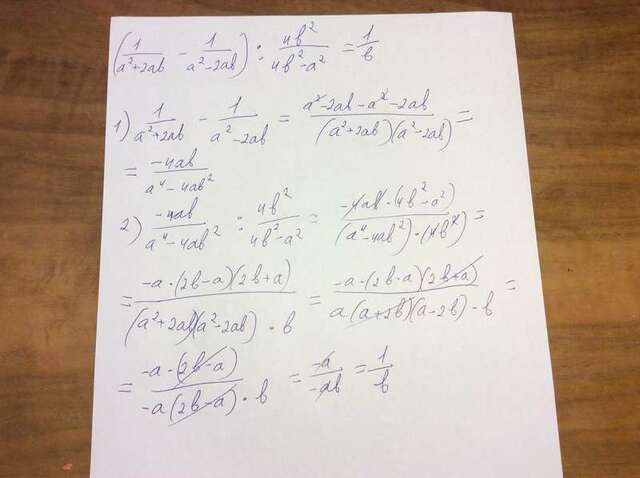 (1/(a²+2ab) - 1/(a²-2ab)) : 4b²/(4b²-a²) = 1/b
1) 1/(a²+2ab) - 1/(a²-2ab) = (a²-2ab-a²-2ab)/((a²+2ab)(a²-2ab)) =
= -4ab/(a⁴-4ab²)
2) -4ab/(a⁴-4ab²) : 4b²/(4b²-a²) = -4ab·(4b²-a²)/((a⁴-4ab²)·(4b²)) =
= -a·(2b-a)(2b+a)/((a²+2ab)(a²-2ab)·b) = -a·(2b-a)(2b+a)/(a(a+2b)(a-2b)·b) =
= -a·(2b-a)/(-a(2b-a)·b) = -a/-ab = 1/b